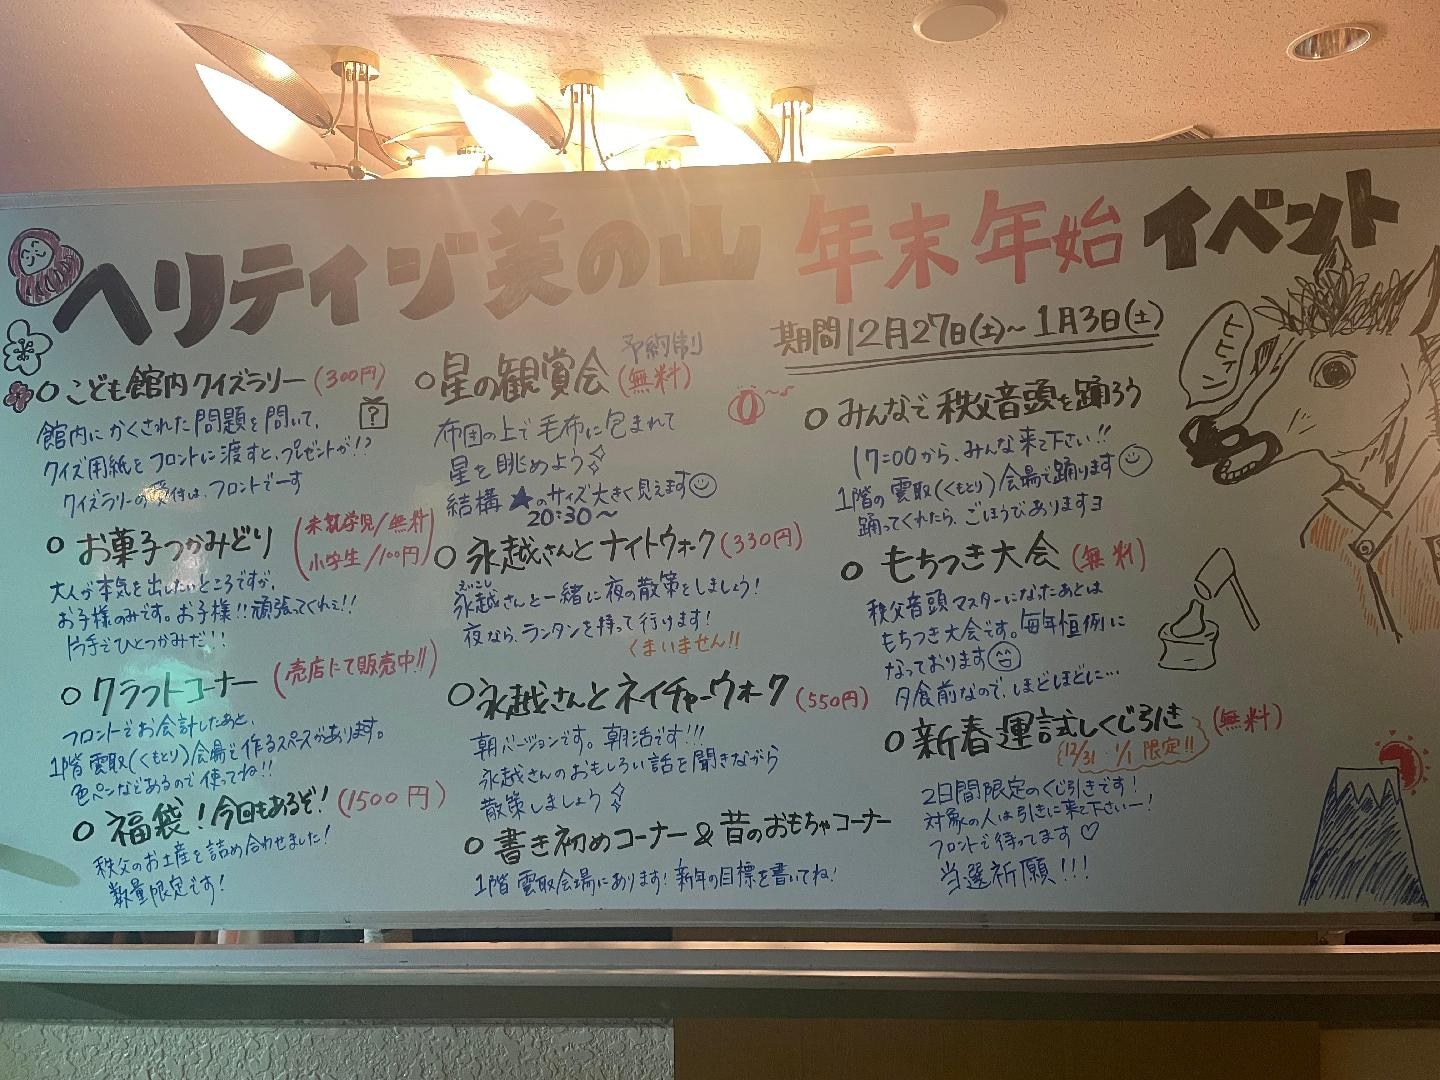 ヘリテイジ美の山 年末年始イベント
期間 12月27日(土)~1月3日(土)
○ こども館内クイズラリー (300円)
館内にかくされた問題を問いて、
クイズ用紙をフロントに渡すと、プレゼントが!?
クイズラリーの受付は、フロントでーす
?
○ お菓子つかみどり (未就学児/無料
小学生/100円)
大人が本気を出したいところですが、
お子様のみです。お子様!!頑張ってくれぇ!!
片手でひとつかみだ!!
○ クラフトコーナー (売店にて販売中!!)
フロントでお会計したあと、
1階 雲取(くもとり)会場で作るスペースがあります。
色ペンなどあるので使ってね!!
○ 福袋!今回もあるぞ! (1500円)
秩父のお土産を詰め合わせました!
数量限定です!
○ 星の観賞会 予約制 (無料)
布団の上で毛布に包まれて
星を眺めよう
結構★のサイズ大きく見えます
20:30~
○ 永越さんとナイトウォーク (330円)
えいこし
永越さんと一緒に夜の散策をしましょう!
夜なら、ランタンを持って行けます!
くまいません!!
○ 永越さんとネイチャーウォーク (550円)
朝バージョンです。朝活です!!!
永越さんのおもしろい話を聞きながら
散策しましょう
○ 書き初めコーナー & 昔のおもちゃコーナー
1階 雲取会場にあります!新年の目標を書いてね!
○ みんなで秩父音頭を踊ろう
17:00から、みんな来て下さい!!
1階の雲取(くもとり)会場で踊ります
踊ってくれたら、ごほうびありますヨ
○ もちつき大会 (無料)
秩父音頭マスターになったあとは
もちつき大会です。毎年恒例に
なっております
夕食前なので、ほどほどに…
○ 新春 運試しくじ引き (無料)
12/31・1/1 限定!!
2日間限定のくじ引きです!
対象の人は引きに来て下さいー!
フロントで待ってます♡
当選祈願!!!